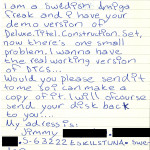 I am a Swedish Amiga
freak and i have your
demo version of
Deluxe.Titel.Construction.Set,
now there's one small
problem, I wanna have
the real working version
of DTCS...
Would you please send it
to me so i can make a
copy of it. I will ofcourse
send your disk back
to you!...
My adress is:
Jimmy
S-63222 ESKILSTUNA